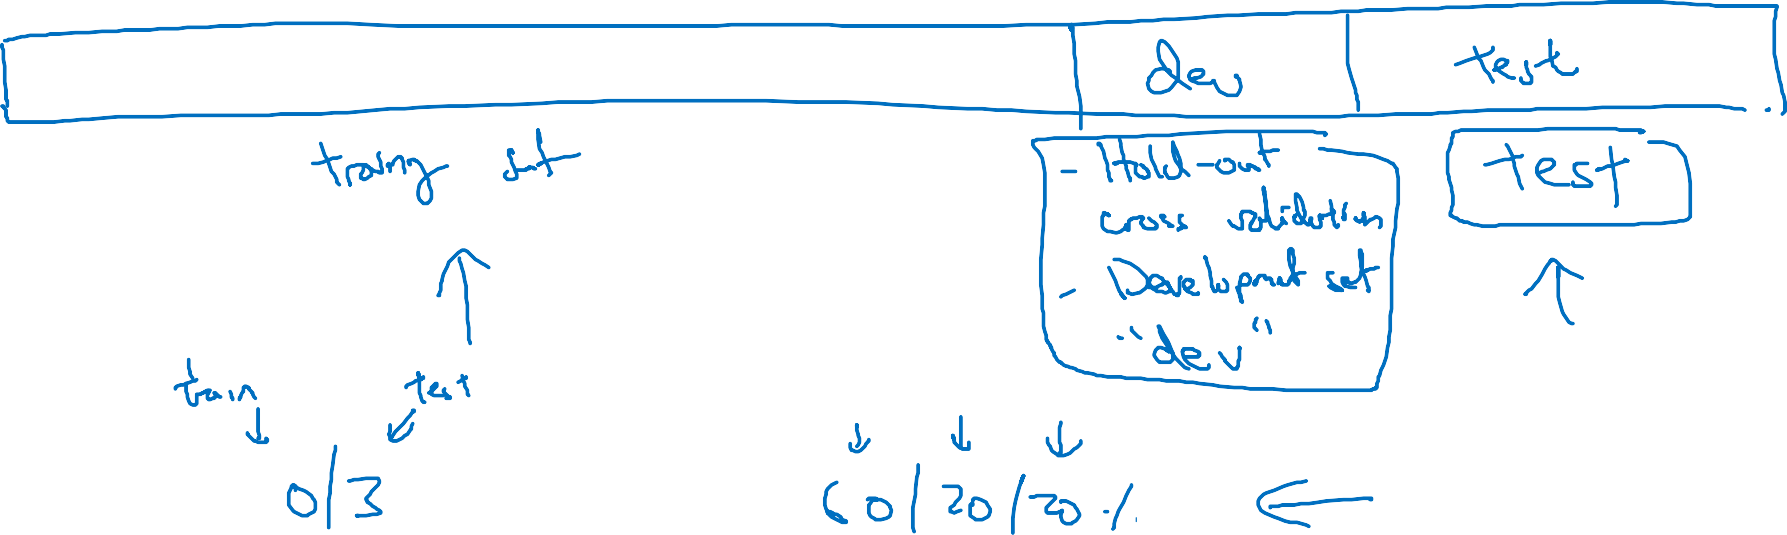 dev
test
training set
- Hold-out
cross validation
- Development set
"dev"
test
train
test
0/3
60/20/20 %